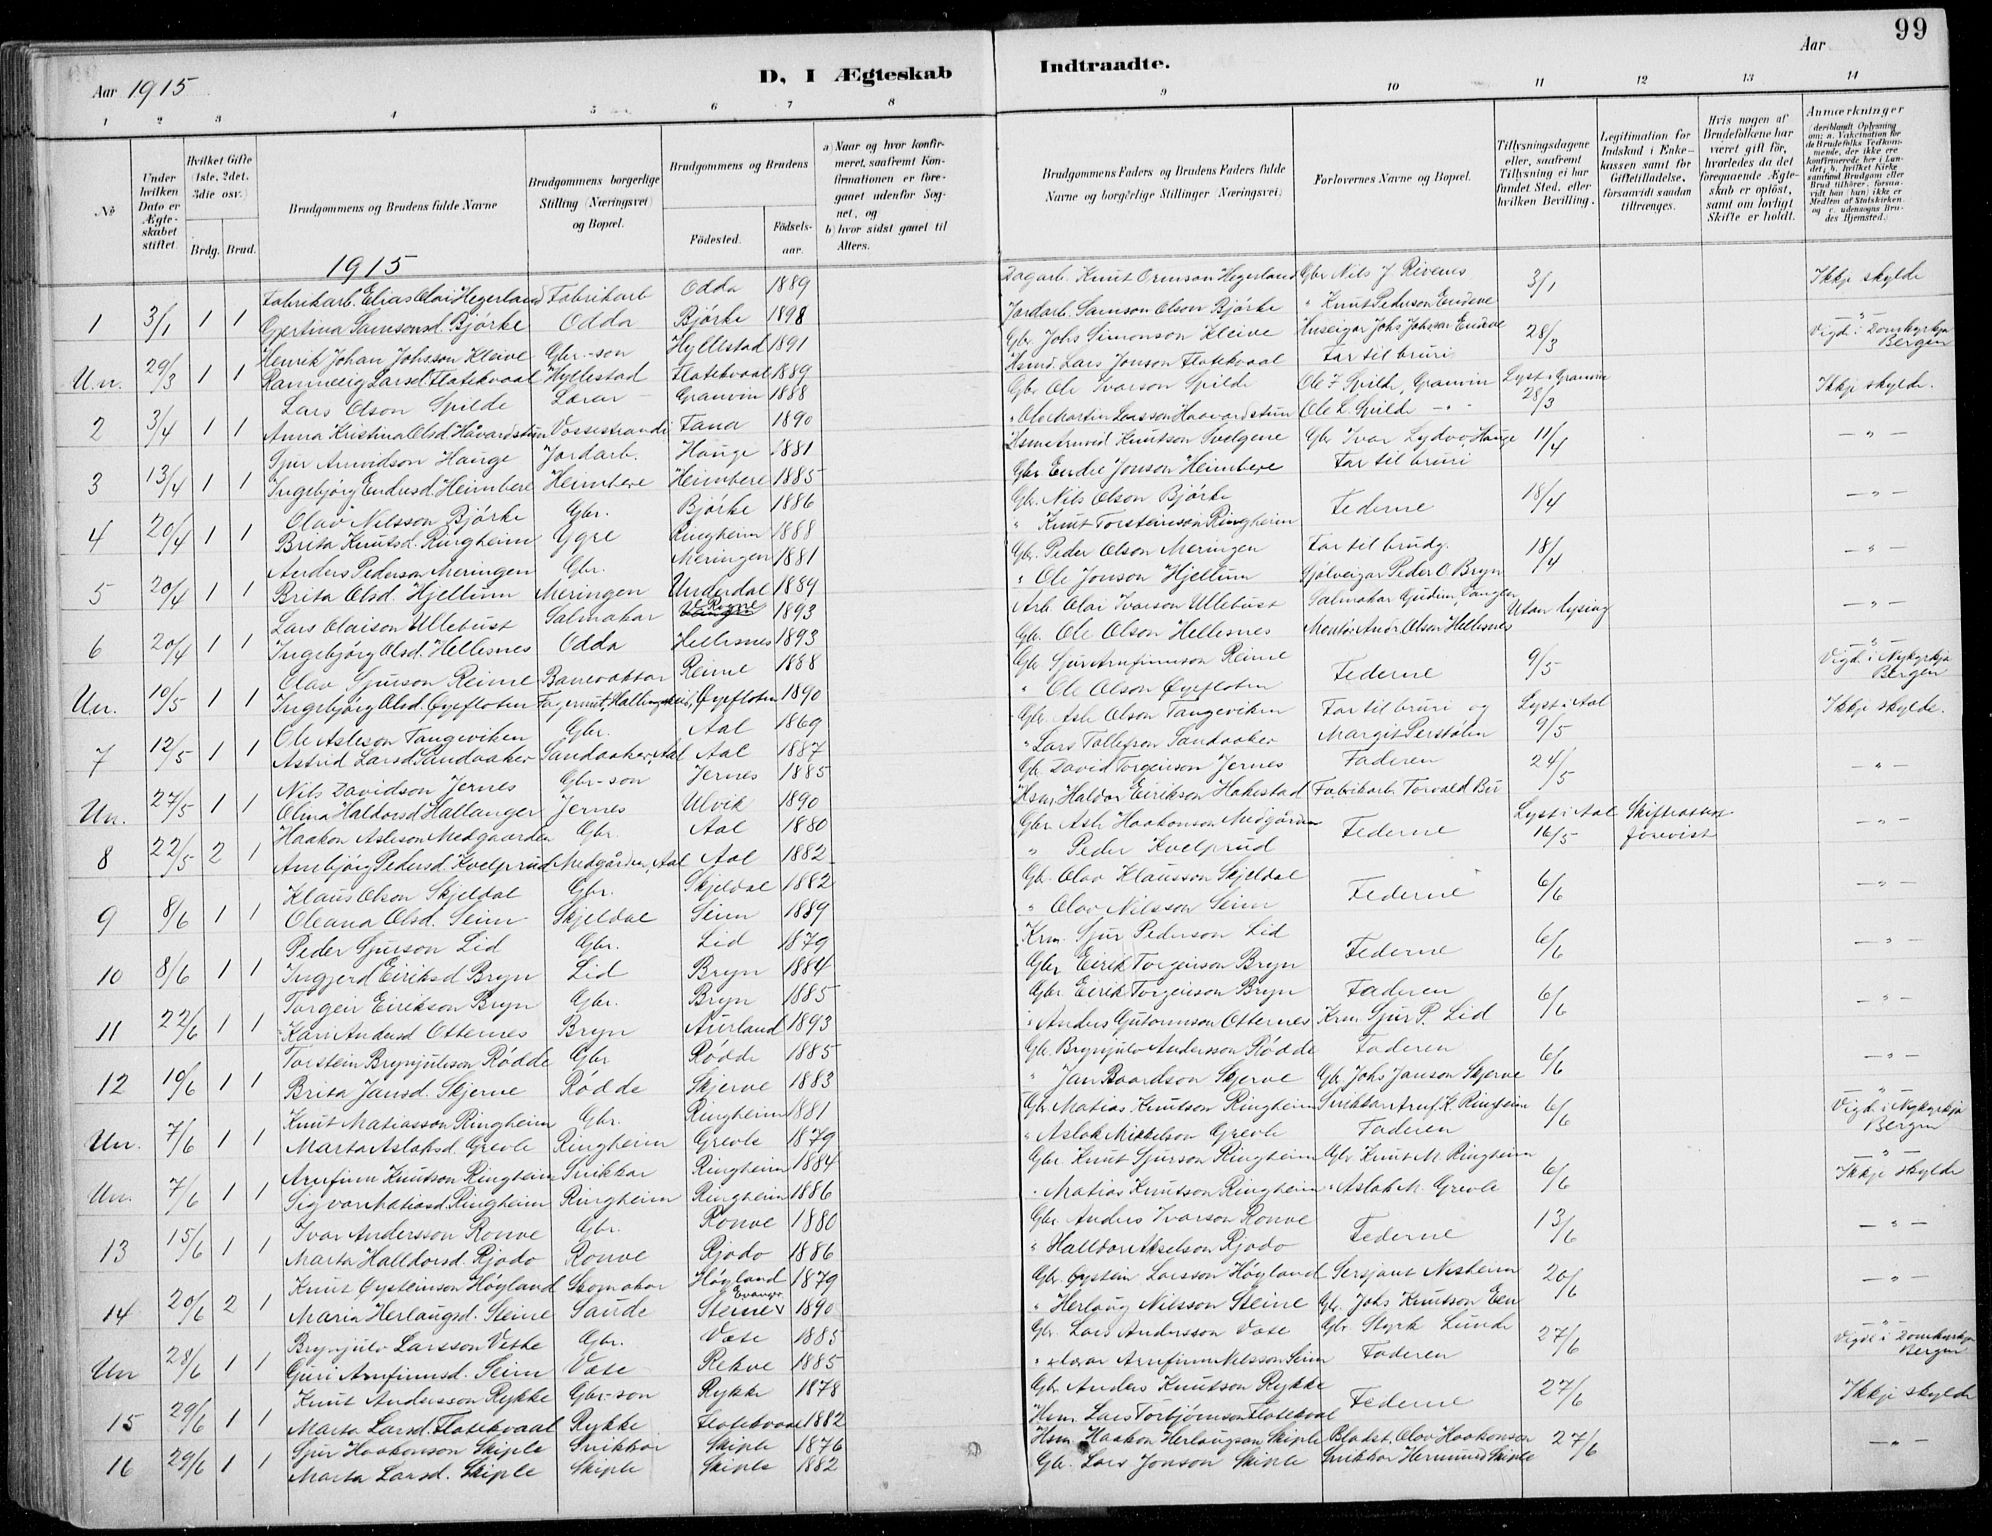 99
Aar 1915
D, I Ægteskab Indtraadte.
Aar
1 2 3 4 5 6 7 8 9 10 11 12 13 14
No
Under hvilken Dato er Ægteskabet stiftet.
Hvilket Gifte (1ste, 2det, 3die osv.)
Brdg. Brud.
Brudgommens og Brudens fulde Navne
Brudgommens borgerlige Stilling (Næringsvei) og Bopæl.
Brudgommens og Brudens
Fødested. Fødselsaar.
a) Naar og hvor konfirmeret, saafremt Konfirmationen er foregaaet udenfor Sognet, og
b) hvor sidst gaaet til Alters.
Brudgommens Faders og Brudens Faders fulde Navne og borgerlige Stillinger (Næringsvei)
Forlovernes Navne og Bopæl.
Tillysningsdagene eller, saafremt Tillysning ei har fundet Sted, efter hvilken Bevilling.
Legitimation for Indskud i Enkekassen samt for Giftetilladelse, forsaavidt saadan tiltrænges.
Hvis nogen af Brudefolkene har været gift før, hvorledes da det foregaaende Ægteskab er opløst, samt om lovligt Skifte er holdt.
Anmærkninger
1915
Fabrikarb. Elias Olai Hegerland Fabrikarb Odda 1889 Dagarb. Knut Ormson Hegerland Gbr Nils J Rivenes 3/1 Ikkje skylde
1 3/1 1 1 Gjertina Samsonsd. Bjørke Odda Bjørke 1898 Jordarb. Samson Olson Bjørke " Knut Pederson Endeve
Henrik Johan Johsson Kleive Gbr-son Hyllestad 1891 Gbr. Johs Simonson Kleive Huseigar Johs Johsson Endeve 28/3 Vigd i Domkyrkja Bergen
Un. 29/3 1 1 Rannveig Larsd. Flatekvaal Hyllestad Flatekvaal 1889 Hsmd. Lars Jonson Flatekvaal Far til bruri
Lars Olson Spilde Lærar Granvin 1888 Gbr Ole Ivarson Spilde Ole I Spilde, Granvin Lyst i Granvin Ikkje skylde.
2 3/4 1 1 Anna Kristina Olsd. Håvardstun Vossestrandi Fana 1890 " Ole Martin Larsson Haavardstun Ole L. Spilde - " - 28/3
Sjur Arnvidson Hauge Jordarb. Hauge 1881 Hsm Arnvid Knutson Svelgene Gbr Ivar Lydvo, Hauge 11/4 - " -
3 13/4 1 1 Ingebjørg Endresd. Heimbere Heimbere Heimbere 1885 Gbr Endre Jonson Heimbere Far til bruri
Olav Nilsson Bjørke Gbr. Bjørke 1886 Gbr. Nils Olson Bjørke Federne 18/4 - " -
4 20/4 1 1 Brita Knutsd. Ringheim Ygre Ringheim 1888 " Knut Torsteinson Ringheim
Anders Pederson Meringen Gbr. Meringen 1881 Gbr. Peder Olson Meringen Far til brudg. 18/4 - " -
5 20/4 1 1 Brita Olsd. Hjellum Meringen Underdal 1889 " Ole Jonson Hjellum Sjølveigar Peder O. Bryn
Lars Olaison Ullebust Salmakar 1893 Arb. Olai Ivarson Ullebust Salmakar Gudim, Vangen Utan lysing - " -
6 20/4 1 1 Ingebjørg Olsd. Hellesnes Odda Hellesnes 1893 Gbr. Ole Olson Hellesnes Montør Andr Olson Hellesnes
Olav Sjurson Reime Banevaktar Reime 1888 Gbr Sjur Arnfinnson Reime Federne 9/5 Vigd i Nykyrkja Bergen
Un. 10/5 1 1 Ingebjørg Olsd. Øyefloten Øyefloten 1890 " Ole Olson Øyefloten
Ole Asleson Tangeviken Gbr. Aal 1869 Gbr. Asle Olson Tangeviken Far til bruri og Lyst i Aal Ikkje skylde.
7 12/5 1 1 Astrid Larsd. Sandaaker Sandaaker, Aal Aal 1887 " Lars Tollefson Sandaaker Margit Perstølen 9/5
Nils Davidson Jernes Gbr-son Jernes 1885 Gbr. David Torgeirson Jernes Faderen 24/5 - " -
Un. 27/5 1 1 Olina Haldorsd. Hallanger Jernes Ulvik 1890 Hsm. Haldor Eirikson Hakestad Fabrikarb Torvald Bu
Haakon Asleson Medgaarden Gbr. Aal 1880 Gbr. Asle Haakonson Medgården Federne Lyst i Aal Skifteattest - " -
8 22/5 2 1 Ambjørg Pedersd. Kvelprud Medgården, Aal Aal 1882 " Peder Kvelprud 16/5 forevist
Klaus Olson Skjeldal Gbr. Skjeldal 1882 Gbr. Olav Klausson Skjeldal Federne 6/6 - " -
9 8/6 1 1 Oleana Olsd. Seim Skjeldal Seim 1889 " Olav Nilsson Seim
Peder Sjurson Lid Gbr. Lid 1879 Krm. Sjur Pederson Lid Federne 6/6 - " -
10 8/6 1 1 Ingjerd Eiriksd Bryn Lid Bryn 1884 Gbr Eirik Torgeirson Bryn
Torgeir Eirikson Bryn Gbr. Bryn 1885 Gbr Eirik Torgeirson Bryn Faderen 6/6 - " -
11 22/6 1 1 Kari Andersd Otternes Bryn Aurland 1893 " Anders Guttormson Otternes Krm. Sjur P. Lid
Torstein Brynjulvson Rødde Gbr Rødde 1885 Gbr. Brynjulv Andersson Rødde Faderen 6/6 - " -
12 10/6 1 1 Brita Jansd. Skjerve Rødde Skjerve 1883 " Jan Baardson Skjerve Gbr. Johs Janson Skjerve
Knut Matiasson Ringheim Gbr. Ringheim 1881 Gbr. Matias Knutson Ringheim Snikkar Arnf. K. Ringheim 6/6 Vigd i Nykyrkja Bergen
Un. 7/6 1 1 Marta Aslaksd. Grevle Ringheim Grevle 1879 " Aslak Mikkelson Grevle Faderen
Arnfinn Knutson Ringheim Snikkar Ringheim 1884 Gbr Knut Sjurson Ringheim Gbr Knut M Ringheim 6/6 - " - Ikkje skylde
Un. 7/6 1 1 Sigvor Matiasd. Ringheim Ringheim Ringheim 1886 " Matias Knutson Ringheim " Aslak M. Grevle
Ivar Andersson Ronve Gbr. Ronve 1880 Gbr Anders Ivarson Ronve Federne 13/6 - " -
13 15/6 1 1 Marta Halldorsd. Rjodo Ronve Rjodo 1886 " Halldor Akselson Rjodo
Knut Øysteinson Høyland Skomakar Høyland 1879 Gbr. Øystein Larsson Høyland Sersjant Nesheim 20/6 - " -
14 20/6 2 1 Maria Herlaugsd. Steine Saude Steine Evanger 1890 " Herlaug Nilsson Steine Gbr. Johs Knutson Een
Brynjulv Larsson Vethe Gbr. Væte 1885 Gbr Lars Andersson Væte Gbr Styrk Lunde 27/6 Vigde i Domkyrkja Bergen
Un 28/6 1 1 Guri Arnfinnsd. Seim Væte Rekve 1885 " Lærar Arnfinn Nilsson Seim Faderen
Knut Andersson Rykke Gbr-son Rykke 1878 Gbr Anders Knutson Rykke Federne 27/6 Ikkje skylde
15 29/6 1 1 Marta Larsd. Flatekvaal Rykke Flatekvaal 1882 Hsm. Lars Torbjørnson Flatekvaal
Sjur Haakonson Skiple Snikkar Skiple 1876 Hsm Haakon Herlaugson Skiple Bladst. Olav Haakonson 27/6 - " -
16 29/6 1 1 Marta Larsd. Skiple Skiple Skiple 1882 Gbr. Lars Jonson Skiple Snikkar Hermund Skiple